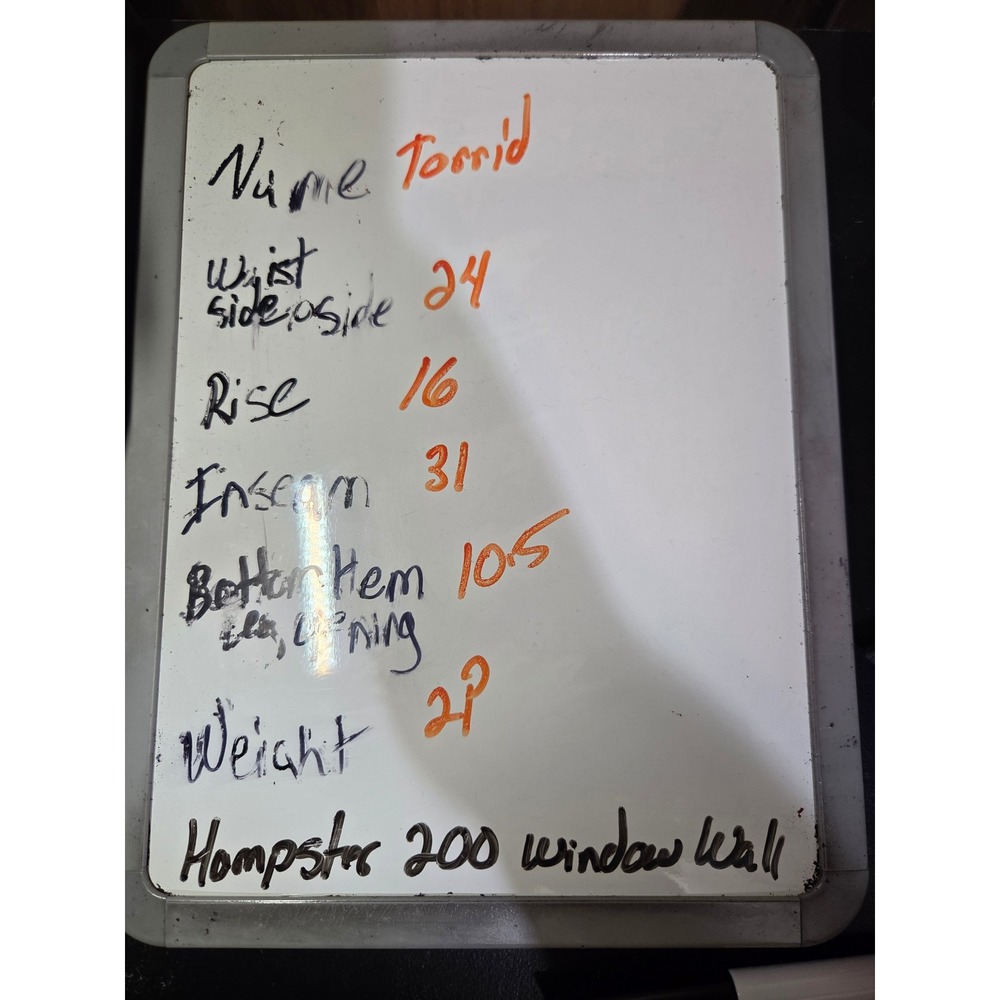 Name Torrid
Waist 24
side to side
Rise 16
Inseam 31
Bottom Hem 10.5
Leg opening
Weight 2P
Hompster 200 window Wall